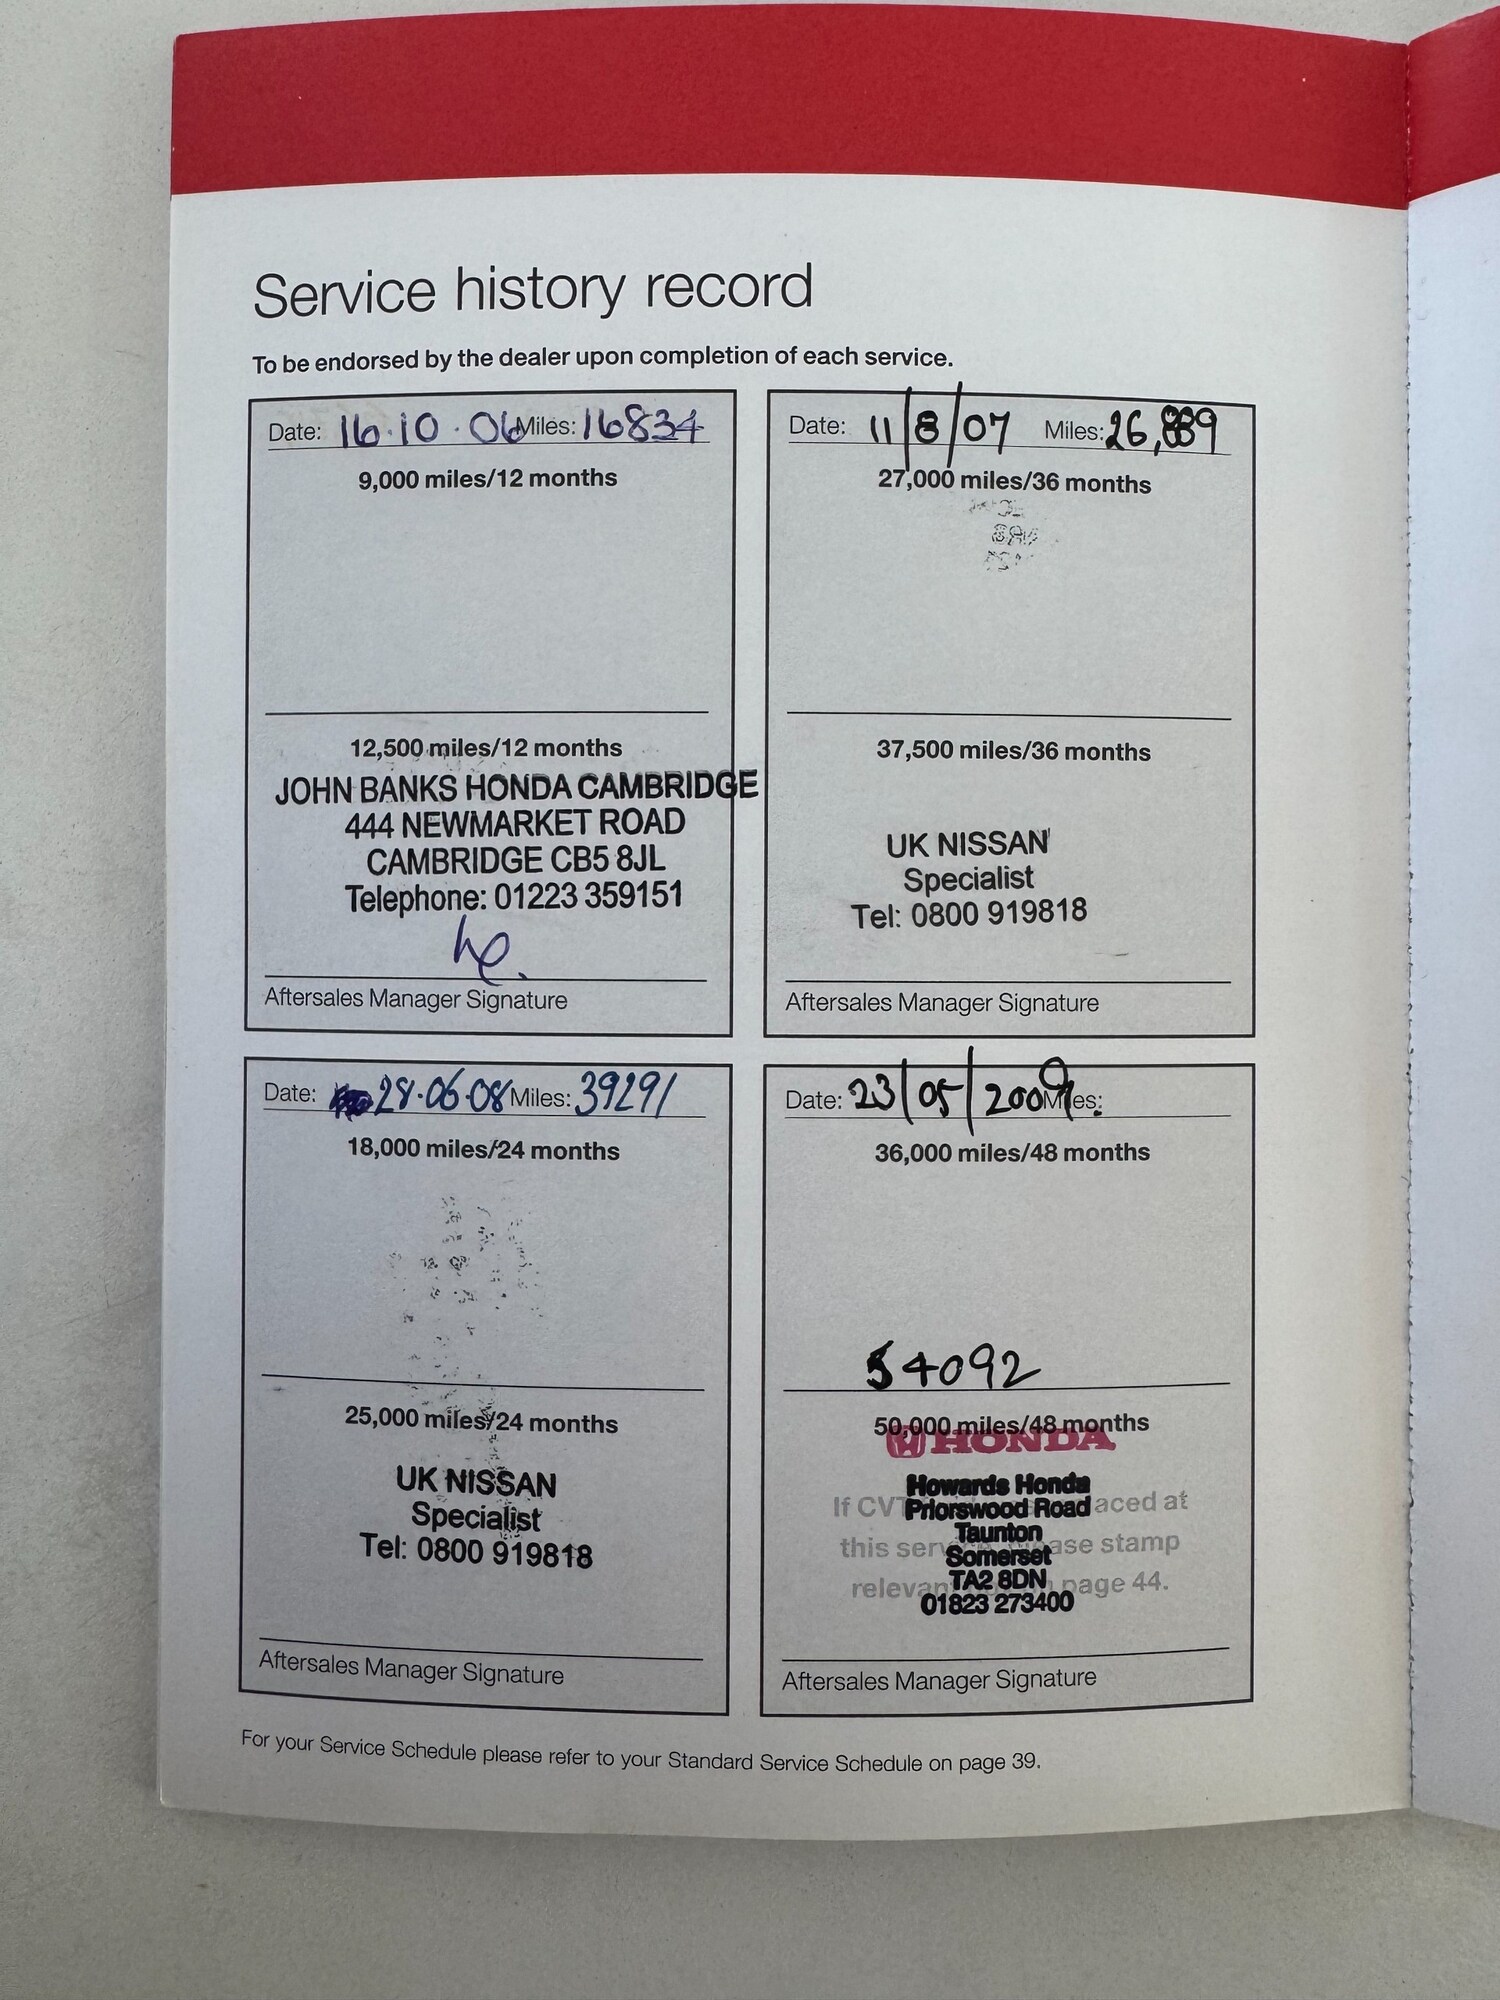 Service history record
To be endorsed by the dealer upon completion of each service.
Date: 16.10.06 Miles: 16834
9,000 miles/12 months
12,500 miles/12 months
JOHN BANKS HONDA CAMBRIDGE
444 NEWMARKET ROAD
CAMBRIDGE CB5 8JL
Telephone: 01223 359151
Aftersales Manager Signature
Date: 11/8/07 Miles: 26,889
27,000 miles/36 months
37,500 miles/36 months
UK NISSAN
Specialist
Tel: 0800 919818
Aftersales Manager Signature
Date: 28.06.08 Miles: 39291
18,000 miles/24 months
25,000 miles/24 months
UK NISSAN
Specialist
Tel: 0800 919818
Aftersales Manager Signature
Date: 23/05/2009 Miles:
36,000 miles/48 months
54092
50,000 miles/48 months
HONDA
Howards Honda
If CVT aced at
Priorswood Road
Taunton
this service please stamp
Somerset
TA2 8DN
relevant page 44.
01823 273400
Aftersales Manager Signature
For your Service Schedule please refer to your Standard Service Schedule on page 39.